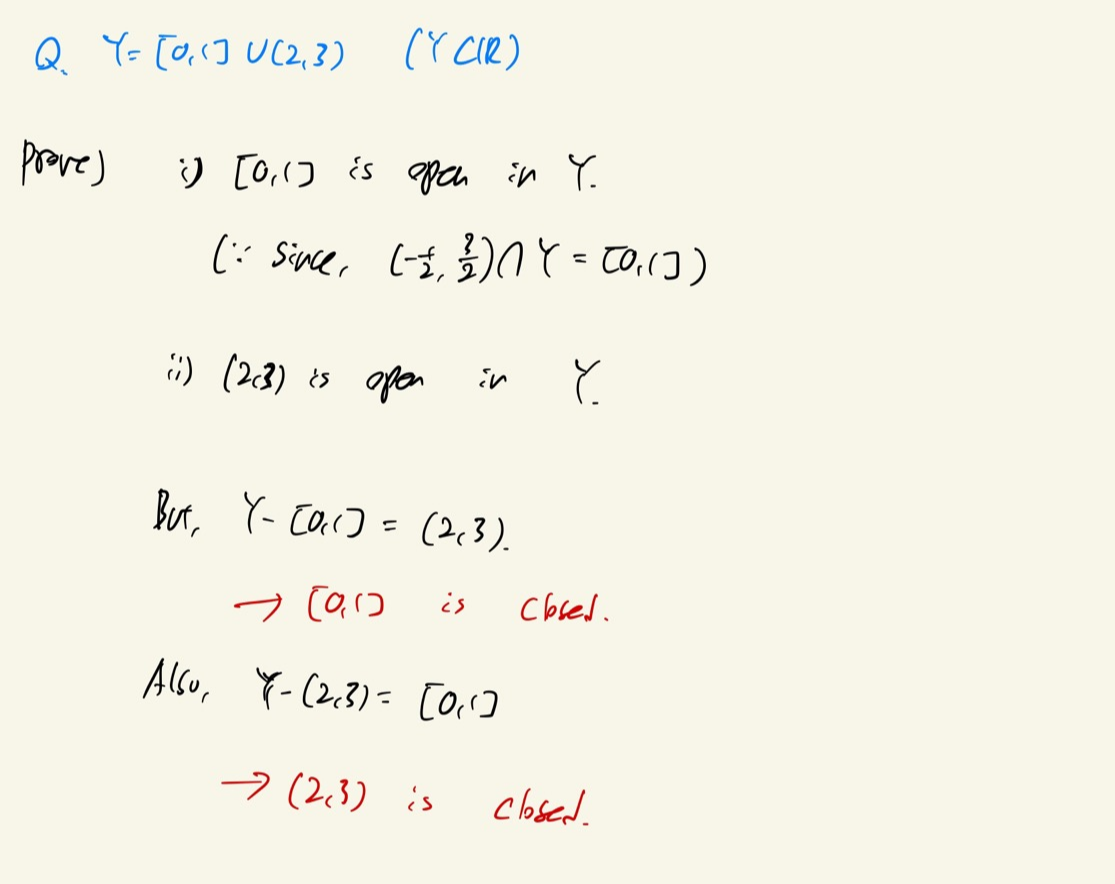 Q. Y= [0,1] ∪ (2,3) (Y⊂ℝ)
Prove) i) [0,1] is open in Y.
(∵ Since, (-1/2, 3/2)∩Y = [0,1])
ii) (2,3) is open in Y.
But, Y- [0,1] = (2,3).
→ [0,1] is closed.
Also, Y-(2,3)= [0,1]
→ (2,3) is closed.